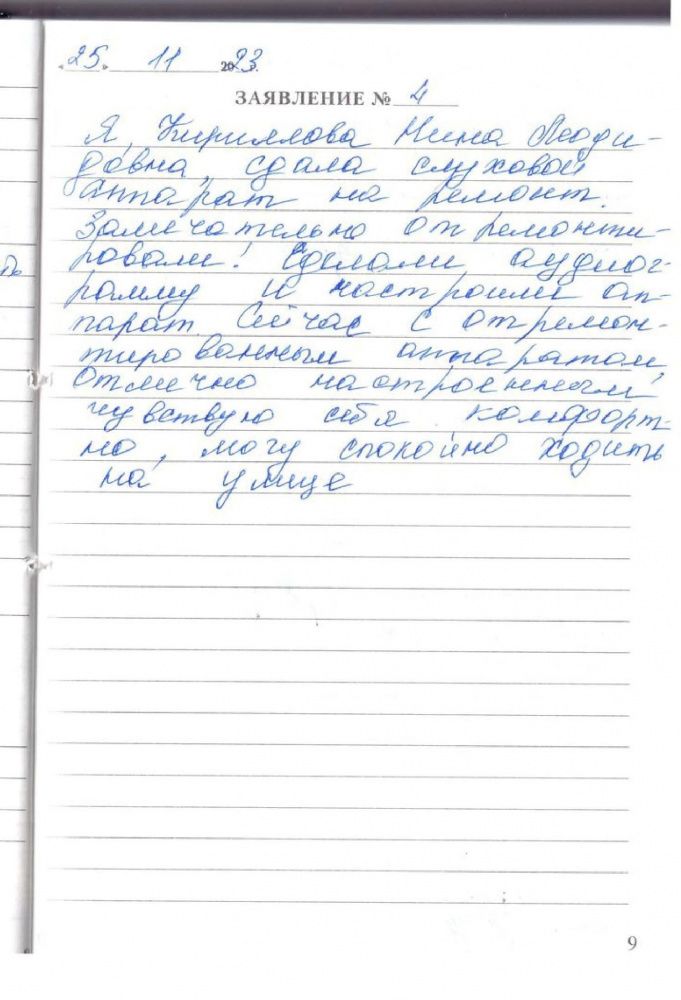 «25» 11 2023г.
ЗАЯВЛЕНИЕ № 4
Я, Кириллова Нина
довна, сдала слуховой
аппарат на ремонт.
Замечательно отремонти-
ровали! Сделали аудиог-
рамму и настроили ап-
парат. Сейчас с отремон-
тированным аппаратом,
отлично настроенным
чувствую себя комфорт-
но, могу спокойно ходить
на улице
9